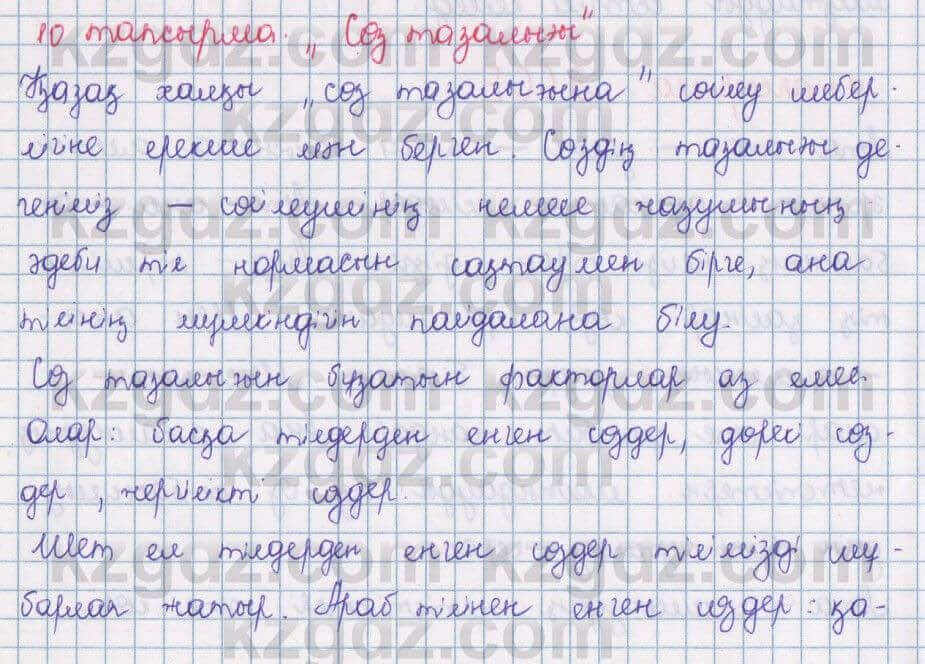 10 тапсырма. „Сөз тазалығы"
Қазақ халқы „сөз тазалығына" сөйлеу шебер-
лігіне ерекше мән берген. Сөздің тазалығы де-
геніміз – сөйлеушінің немесе жазушының
әдеби тіл нормасын сақтаумен бірге, ана
тілінің мүмкіндігін пайдалана білу.
Сөз тазалығын бұзатын факторлар аз емес.
Олар: басқа тілдерден енген сөздер, дөрекі сөз-
дер, жергілікті сөздер.
Шет ел тілдерден енген сөздер тілімізді шұ-
барлап жатыр. Араб тілінен енген сөздер: қа-
kzgdz.com